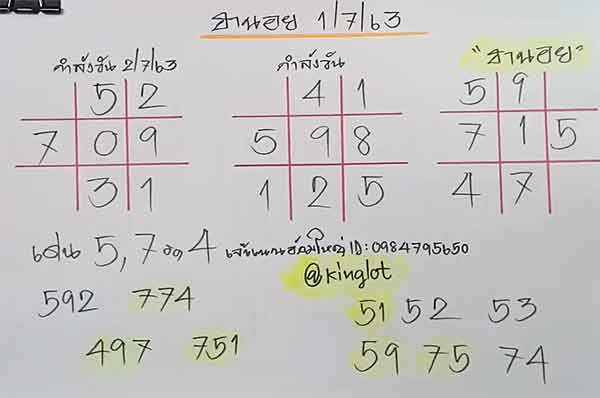 ฮานอย 1/7/63
กำลังวัน 2/7/63
กำลังวัน
"ฮานอย"
5 2
4 1
5 9
7 0 9
5 9 8
7 1 5
3 1
1 2 5
4 7
เด่น 5, 7 รอง 4 ID: 0984795650
@kinglot
592 774
51 52 53
497 751
59 75 74